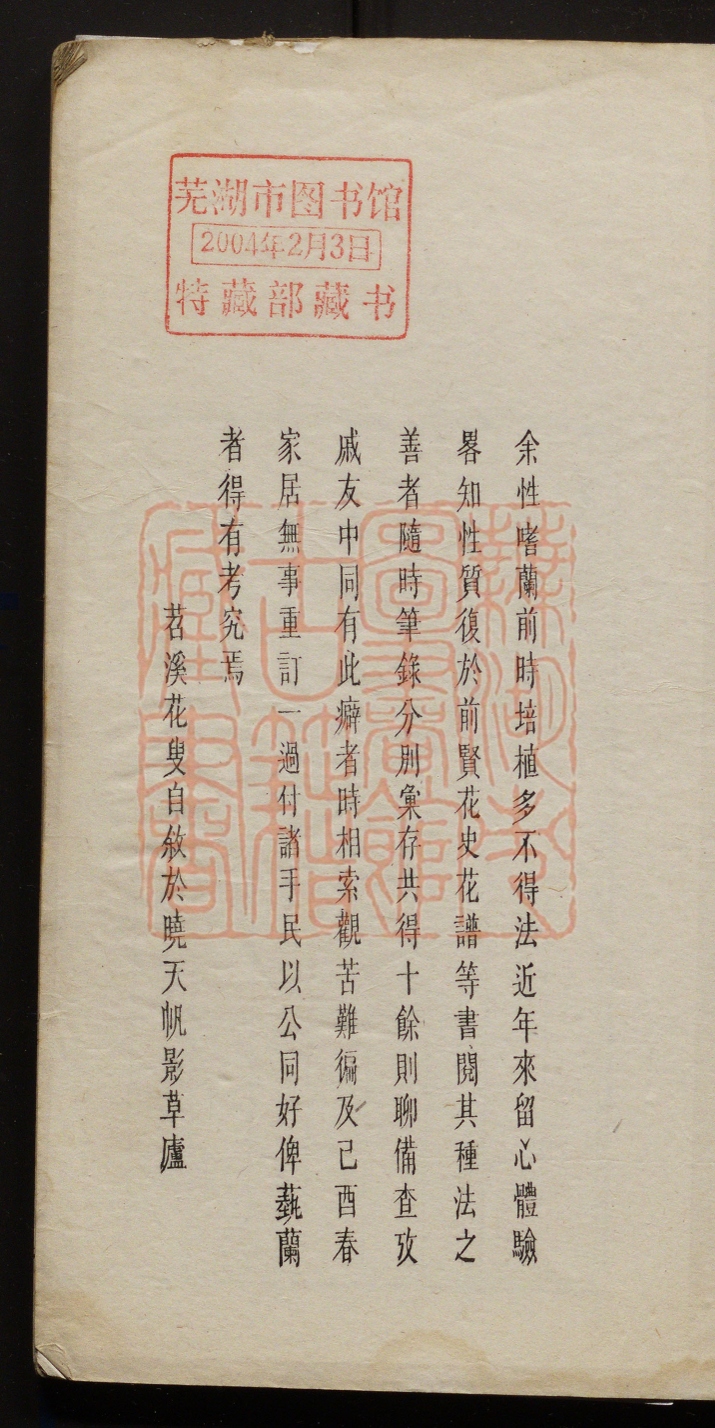 芜湖市图书馆
2004年2月3日
特藏部藏书
余性嗜蘭前時培植多不得法近年來留心體驗
畧知性質復於前賢花史花譜等書閱其種法之
善者隨時筆錄分別彙存共得十餘則聊備查攷
戚友中同有此癖者時相索觀苦難徧及己酉春
家居無事重訂一過付諸手民以公同好俾蓺蘭
者得有考究焉
苕溪花叟自敘於曉天帆影草廬